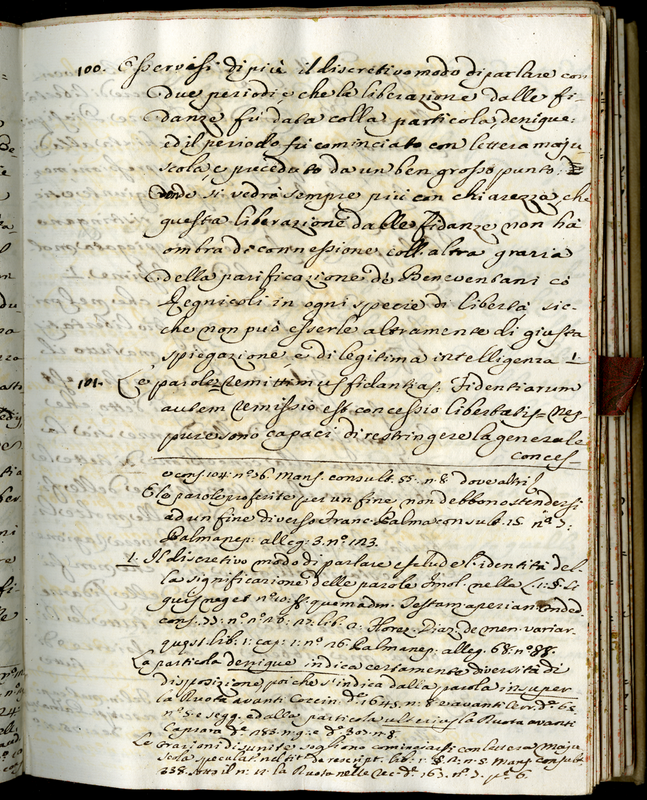 100. Osservasi di più il discretivo modo di parlare con
due periodi, e che la liberazione dalle fi-
danze fu data colla particola, denique:
ed il periodo fu cominciato con lettera maju
scola, e preceduto da un ben grosso punto:
onde si vedrà sempre più con chiarezza che
questa liberazione dalle fidanze non hà
ombra di connessione coll'altra grazia
della parificazione de Beneventani co
Regnicoli in ogni specie di libertà sic-
che non può esserle altramente di giusta
spiegazione e di legitima intelligenza 1
101. Le parole remittimus fidantias: Fidentiarum
autem remissio est concessio libertatis = nep
pure sono capaci di restringere la generale
conces-
e cons. 104. n.º 36. Mans. consult. 55. n. 8. dove altri
Le parole proferite per un fine non debbono stendersi
ad un fine diverso Franc. Palma consult. 15 n.º
Palma nep. alleg. 3. n.º 123.
1. Il discretivo modo di parlare esclude l'identità del-
la significazione delle parole Imol. nella L. 1. §.
cons. lib. 2. Flores Diaz de Men. variar.
quest. lib. 1. cap. 1. n.º 26 Palma nep. alleg. 68. n.º 88.
La particola denique indica certamente diversità di
disposizione, poiche s'indica dalla parola insuper
la Ruota avanti
n.º 5. e segg. e dalla particola ulterius la Ruota avanti
Caprara
Le orazioni disunite sogliono cominciarsi con lettera maju
scola Specular. nel tit. de rescript. lib. 1. Mans. consult.
338. sotto il n. 12. la Ruota nelle Rec.